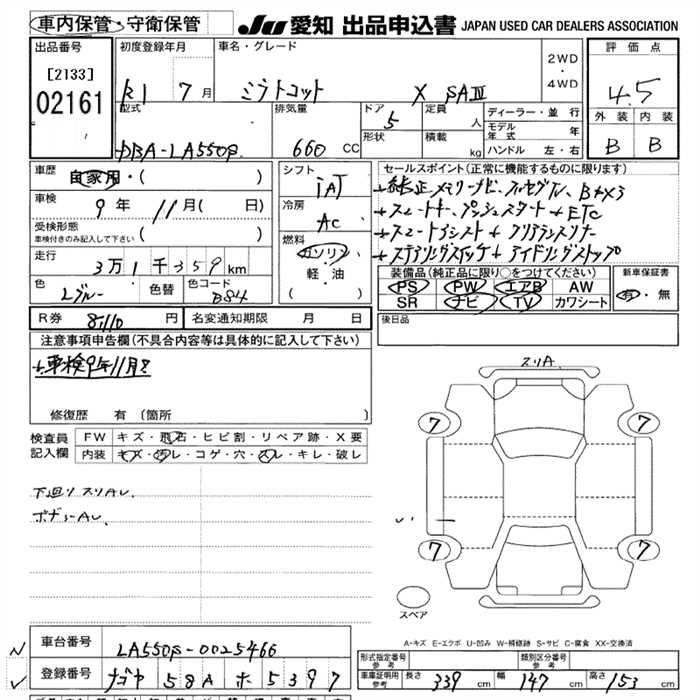 車内保管・守衛保管
JU 愛知 出品申込書 JAPAN USED CAR DEALERS ASSOCIATION
出品番号
[2133]
02161
初度登録年月
R1 7月
車名・グレード
ミラトコット X SAⅢ
2WD
・
4WD
評価点
4.5
外装 内装
B B
型式
DBA-LA550S
排気量
660 CC
ドア 5
形状
定員 人
積載 kg
ディーラー・並行
モデル年式 年
ハンドル 左・右
車歴
自家用・( )
車検
9年 11月( 日)
受検形態
車検付きのみ記入して下さい ( )
走行
3万1千359km
色
Lブルー
色替
色コード
B84
シフト
iAT
冷房
AC
燃料
ガソリン
・
軽・油
( )
セールスポイント(正常に機能するものに限ります)
+純正メモリーナビ、フルセグTV、Bカメラ
+スマートキー、プッシュスタート+ETC
+スマートアシスト+クリアランスソナー
+ステアリングスイッチ+アイドリングストップ
装備品(純正品に限り○をつけてください)
PS PW エアB AW
SR ナビ TV カワシート
新車保証書
有・無
R券 8,110 円
名変通知期限 月 日
後日品
注意事項申告欄(不具合内容等は具体的に記入して下さい)
+車検9年11月迄
修復歴 有(箇所 )
検査員記入欄
FW キズ・飛石・ヒビ割・リペア跡・X要
内装 キズ・汚レ・コゲ・穴・スレ・キレ・破レ
下廻りスリAU.
ボディーAU.
スリA.
7 7
7 7
スペア
A-キズ E-エクボ U-凹み W-補修跡 S-サビ C-腐食 XX-交換済
車台番号 LA550S-0025466
登録番号 ナゴヤ 58A ホ 5397
形式指定番号 参考
類別区分番号 参考
車庫証明用 参考
長さ 339 cm 幅 147 cm 高さ 153 cm